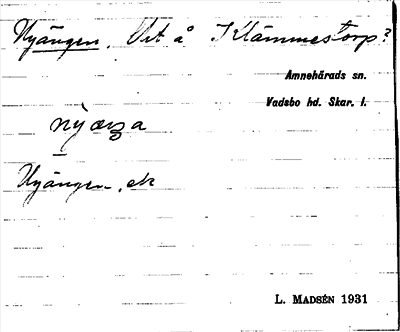 Nyängen. Urt å Klämmestorp?
Amnehärads sn.
Vadsbo hd. Skar. l.
Nyängen, ek
L. MADSÉN 1931